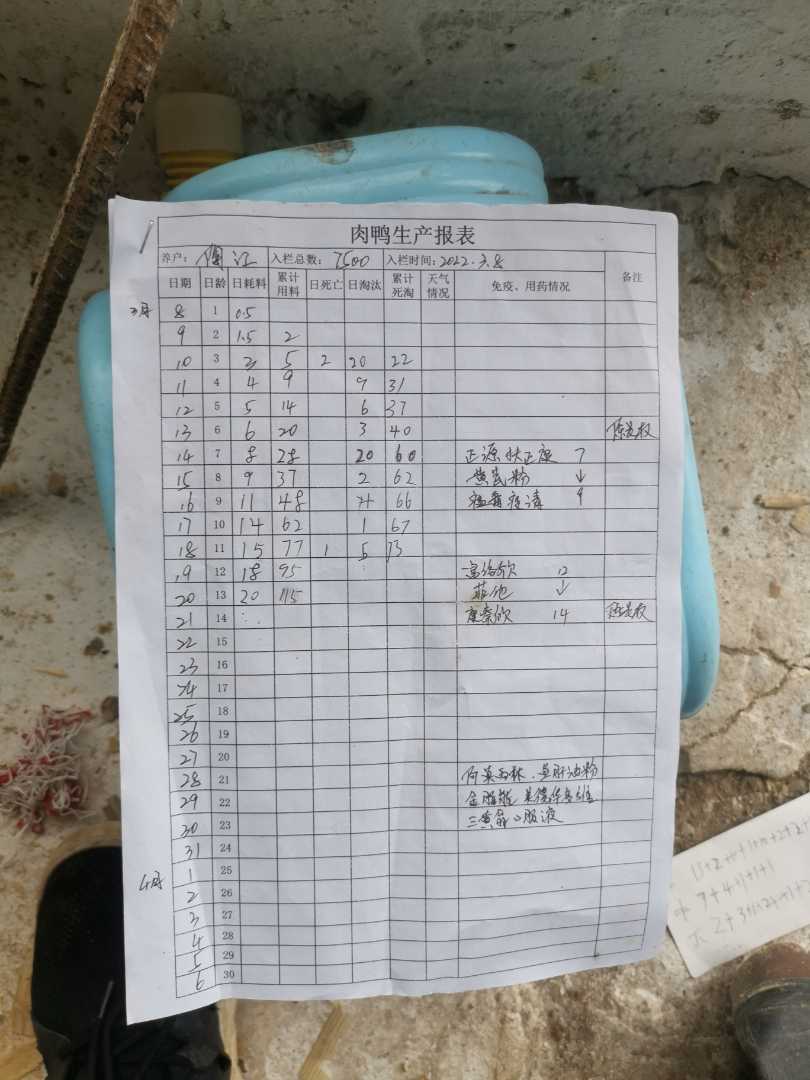 肉鸭生产报表
养户: 江 入栏总数: 7500 入栏时间: 2022.3.8 备注
日期 日龄 日耗料 累计用料 日死亡 日淘汰 累计死淘 天气情况 免疫、用药情况
3月 8 1 0.5
9 2 1.5 2
10 3 3 5 2 20 22
11 4 4 9 9 31
12 5 5 14 6 37
13 6 6 20 3 40
14 7 8 28 20 60 正源 7
15 8 9 37 2 62 黄芪粉 ↓
16 9 11 48 4 66 9
17 10 14 62 1 67
18 11 15 77 1 5 73
19 12 18 95 12
20 13 20 115 ↓
21 14 14
22 15
23 16
24 17
25 18
26 19
27 20
28 21 鱼肝油粉
29 22
30 23 三黄 口服液
31 24
4月 1 25
2 26
3 27
4 28
5 29
6 30